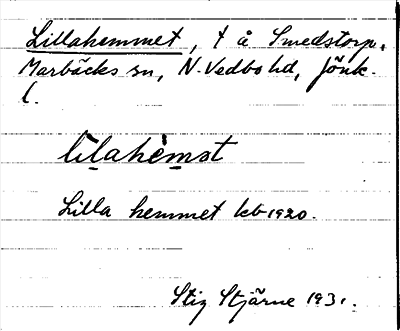 Lillahemmet, t å Smedstorp,
Marbäcks sn, N. Vedbo hd, Jönk.
l.
lìlahèmət
Lilla hemmet kb 1920.
Stig Stjärne 1931.